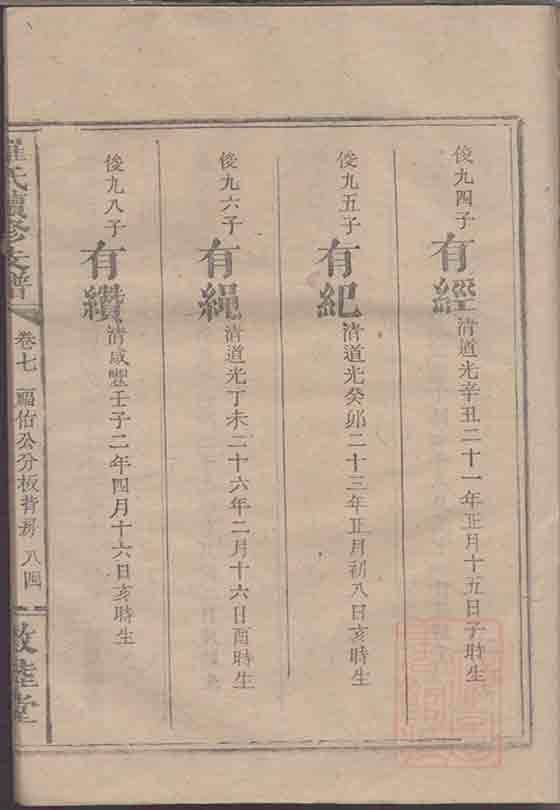 俊九四子有經清道光辛丑二十一年正月十五日子時生
俊九五子有紀清道光癸夘二十三年正月初八日亥時生
俊九六子有繩清道光丁未二十六年二月十六日酉時生
俊九八子有纘清咸豐壬子二年四月十六日亥時生
氏續修支譜
卷七
福佑公分板背房
八四
敦睦堂